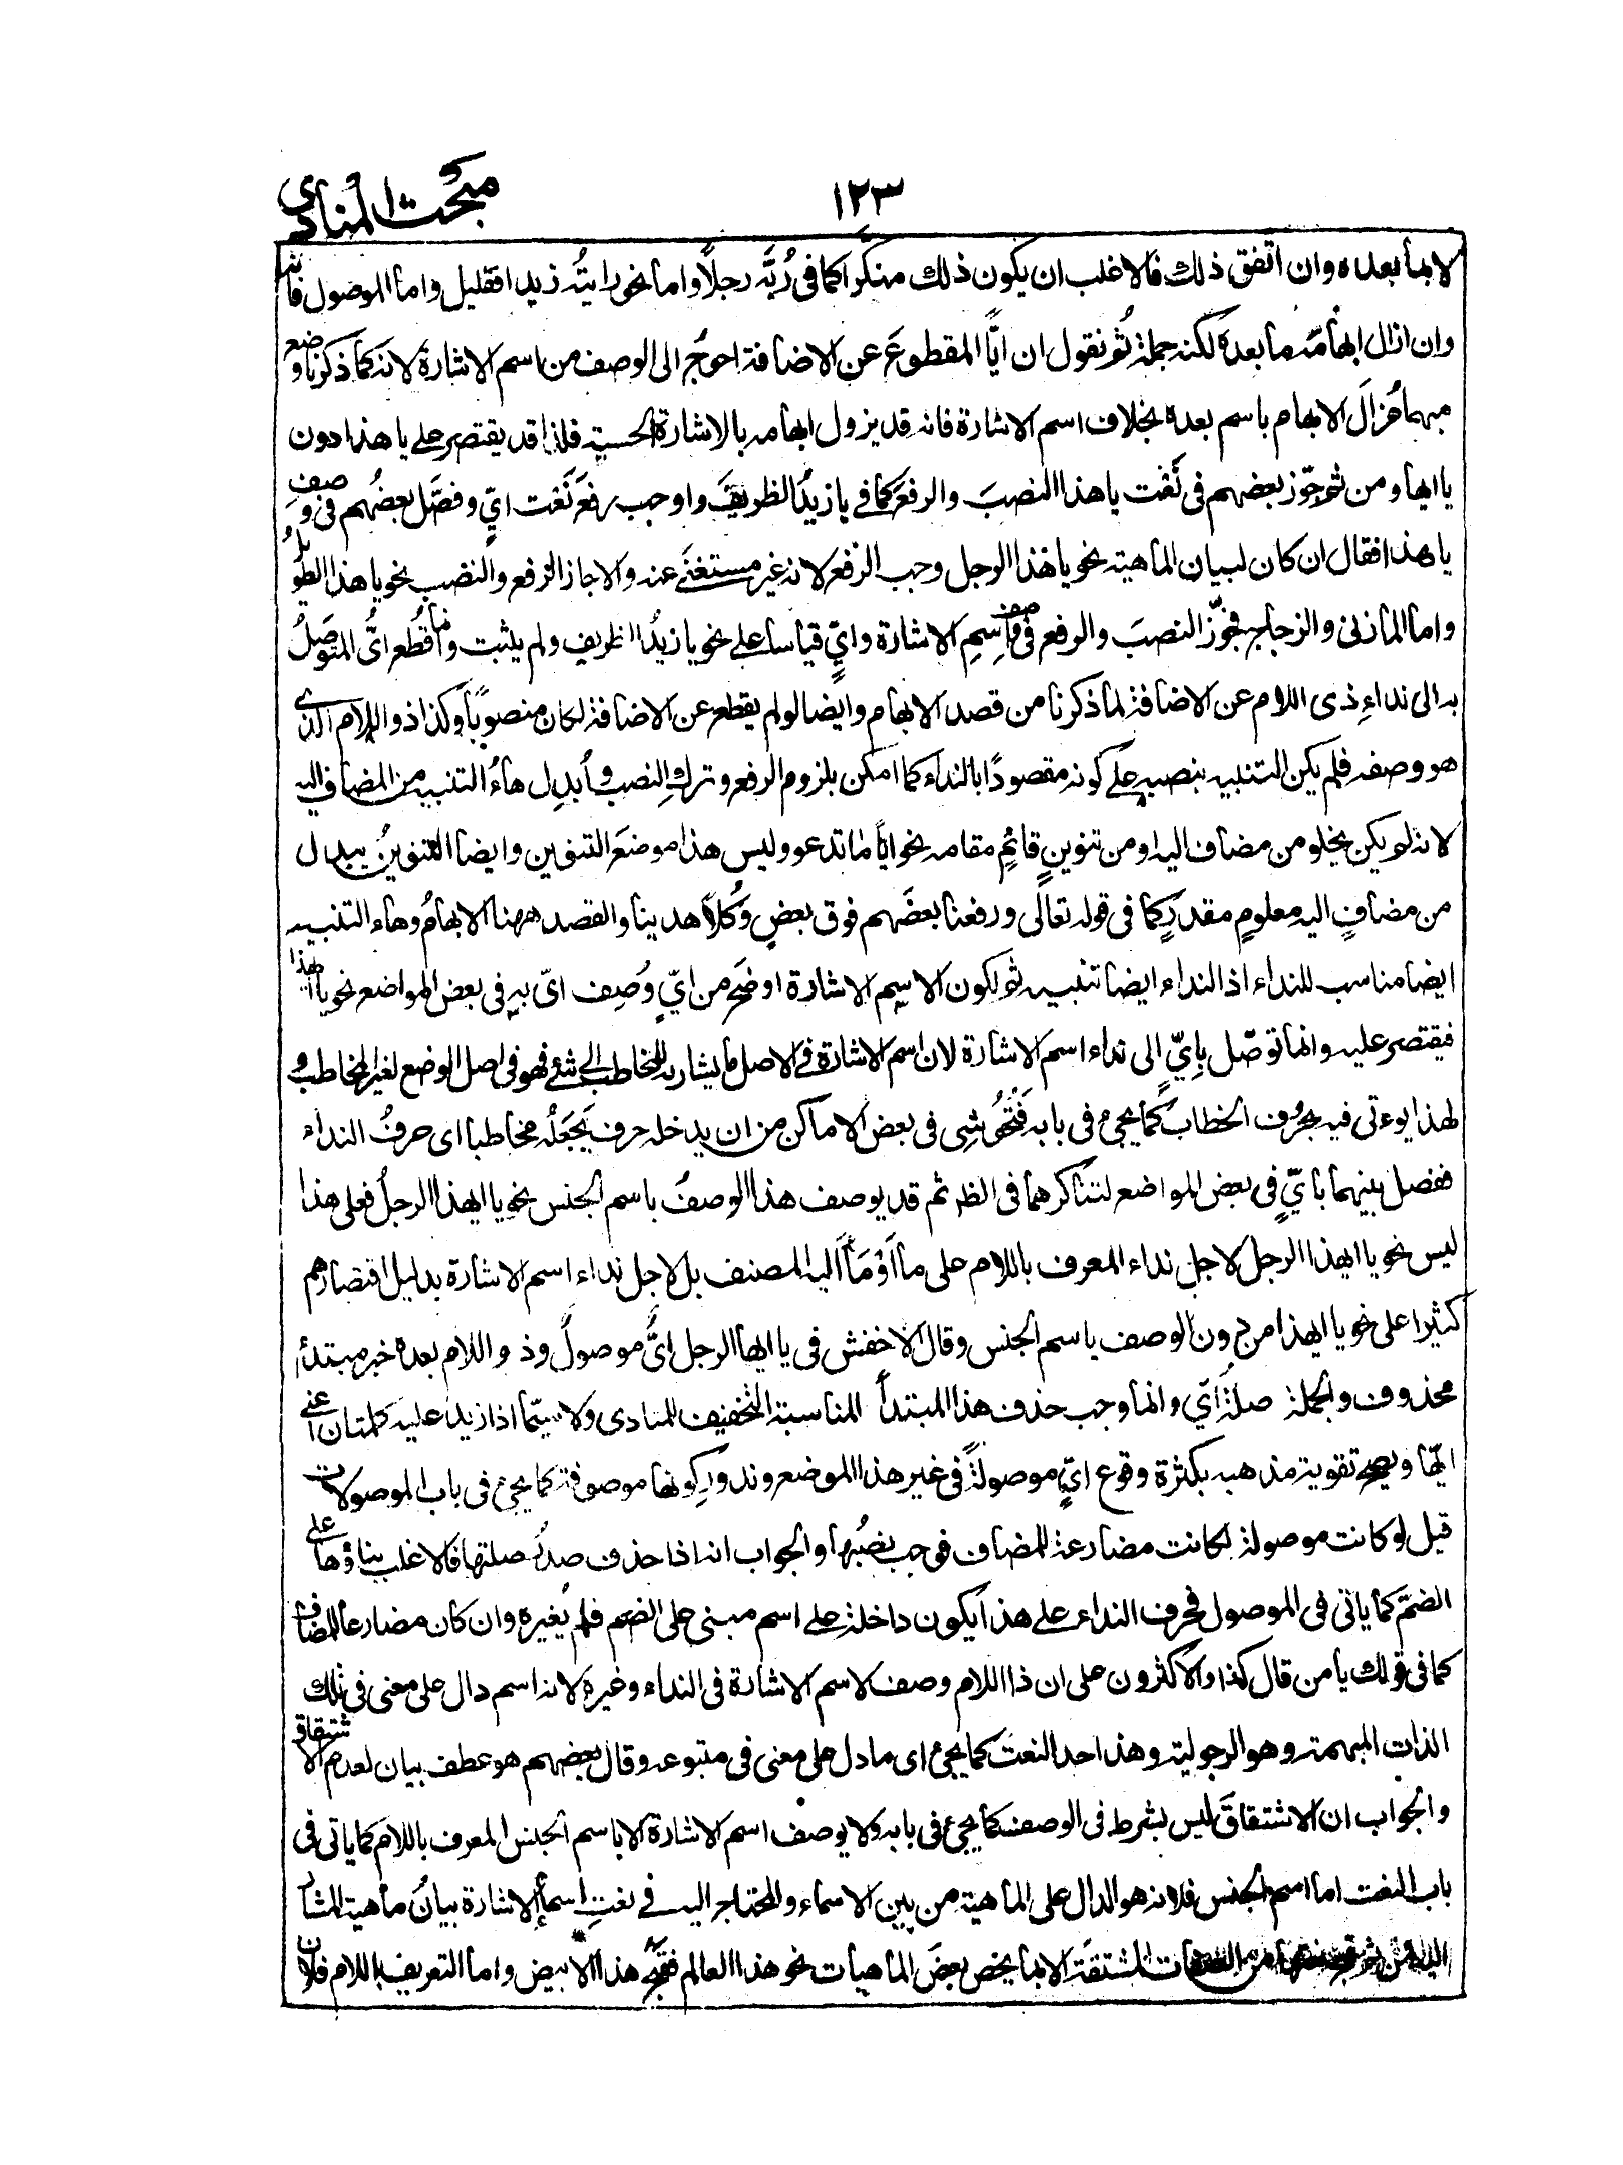 مبحث المنادى
١٢٣
لا بما بعده وان اتفق ذلك فالاغلب ان يكون ذلك منكرا كما فى رُبَّه رجلاً واما نحو رايتُه زيدا فقليل واما الموصول فانه
وان ازال ابهامَه ما بعده لكنه جملة ثم نقول ان ايًّا المقطوعَ عن الاضافة احوج الى الوصف من اسم الاشارة لانه كما ذكرنا وضع
مبهما مُزالَ الابهام باسم بعده بخلاف اسم الاشارة فانه قد يزول ابهامه بالاشارة الحسية فلذا قد يقتصر على يا هذا دون
يا ايها ومن ثم جوّز بعضهم فى نَعْت يا هذا النصبَ والرفعَ كما فى يا زيدُ الظريف واوجب رفعَ نَعْت ايٍّ وفصَّل بعضُهم فى وصف
يا هذا فقال ان كان لبيان الماهية نحو يا هذا الرجل وجب الرفع لانه غير مستغنًى عنه والا جاز الرفع والنصب نحو يا هذا الطويلُ
واما المازنى والزجاج فجوّز النصبَ والرفع فى وصف اسم الاشارة وايٍّ قياسا على نحو يا زيدُ الظريف ولم يثبت وانما قُطع ايٌّ المتوصلُ
به الى نداءِ ذى اللام عن الاضافة لما ذكرنا من قصد الابهام وايضا لو لم يقطع عن الاضافة لكان منصوبًا وكذا ذو اللام الذى
هو وصفه فلم يكن التنبيه بنصبه على كونه مقصودًا بالنداء كما امكن بلزوم الرفع وتركِ النصب وأُبدِل هاءُ التنبيه من المضاف اليه
لانه لم يكن يخلو من مضاف اليه او من تنوينٍ قائمٍ مقامه نحو ايًّا ما تدعو وليس هذا موضعَ التنوين وايضا التنوينُ يبدل
من مضافٍ اليه معلومٍ مقدرٍ كما فى قوله تعالى ورفعنا بعضَهم فوق بعضٍ وكُلاًّ هدينا والقصد ههنا الابهامُ وهاء التنبيه
ايضا مناسب للنداء اذ النداء ايضا تنبيه ثم لكون الاسم الاشارة اوضحَ من ايٍّ وُصِف اىّ به فى بعض المواضع نحو يا ايهذا
فيقتصر عليه وانما توصّل بِايٍّ الى نداء اسم الاشارة لان اسم الاشارة فى الاصل ما يشار به للمخاطب الى شئ فهو فى اصل الوضع لغير المخاطب و
لهذا يوءتى فيه بحرف الخطاب كما يجئ فى بابه فَتُحُوشِى فى بعض الاماكن من ان يدخله حرف يَجْعَلُه مخاطبا اى حرفُ النداء
ففصل بينهما بايٍّ فى بعض المواضع لتناكرهما فى الظ ثم قد يوصف هذا الوصفُ باسم الجنس نحو يا ايهذا الرجلُ فعلى هذا
ليس نحو يا ايهذا الرجل لاجل نداء المعرف باللام على ما أَوْمَأَ اليه المصنف بل لاجل نداء اسم الاشارة بدليل اقتصارهم
كثيرا على نحو يا ايهذا من دون الوصف باسم الجنس وقال الاخفش فى يا ايها الرجل ايٌّ موصولٌ وذو اللام بعده خبر مبتدأ
محذوف والجملة صلةُ ايّ وانما وجب حذف هذا المبتدأ لمناسبة التخفيف للمنادى ولا سيّما اذا زيد عليه كلمتان اعنى
ايّها ويصح تقوية مذهبه بكثرة وقوع ايٍّ موصولةً فى غير هذا الموضع وندورِ كونها موصوفة كما يجئ فى باب الموصولات
قيل لو كانت موصولة لكانت مضارعة للمضاف فوجب نصبُها والجواب انه اذا حذف صدرُ صلتها فالاغلب بناؤها على
الضمّ كما ياتى فى الموصول فحرف النداء على هذا يكون داخلة على اسم مبنى على الضم فلم يغيره وان كان مضارعا للمضاف
كما فى قولك يا من قال كذا والاكثرون على ان ذا اللام وصف لاسم الاشارة فى النداء وغيره لانه اسم دال على معنى فى تلك
الذات المبهمة وهو الرجولية وهذا حد النعت كما يجئ اى ما دل على معنى فى متبوعه وقال بعضهم هو عطف بيان لعدم الاشتقاق
والجواب ان الاشتقاقَ ليس بشرط فى الوصف كما يجئ فى بابه ولا يوصف اسم الاشارة الا باسم الجنس المعرف باللام كما ياتى فى
باب النعت اما اسم الجنس فلانه هو الدال على الماهية من بين الاسماء والمحتاج اليه فى نعتِ اسماءِ الاشارة بيانُ ماهية المشار
اليه من المشتقة الا بما يخص بعضَ الماهيات نحو هذا العالم فقبح هذا الابيض واما التعريف باللام فلان